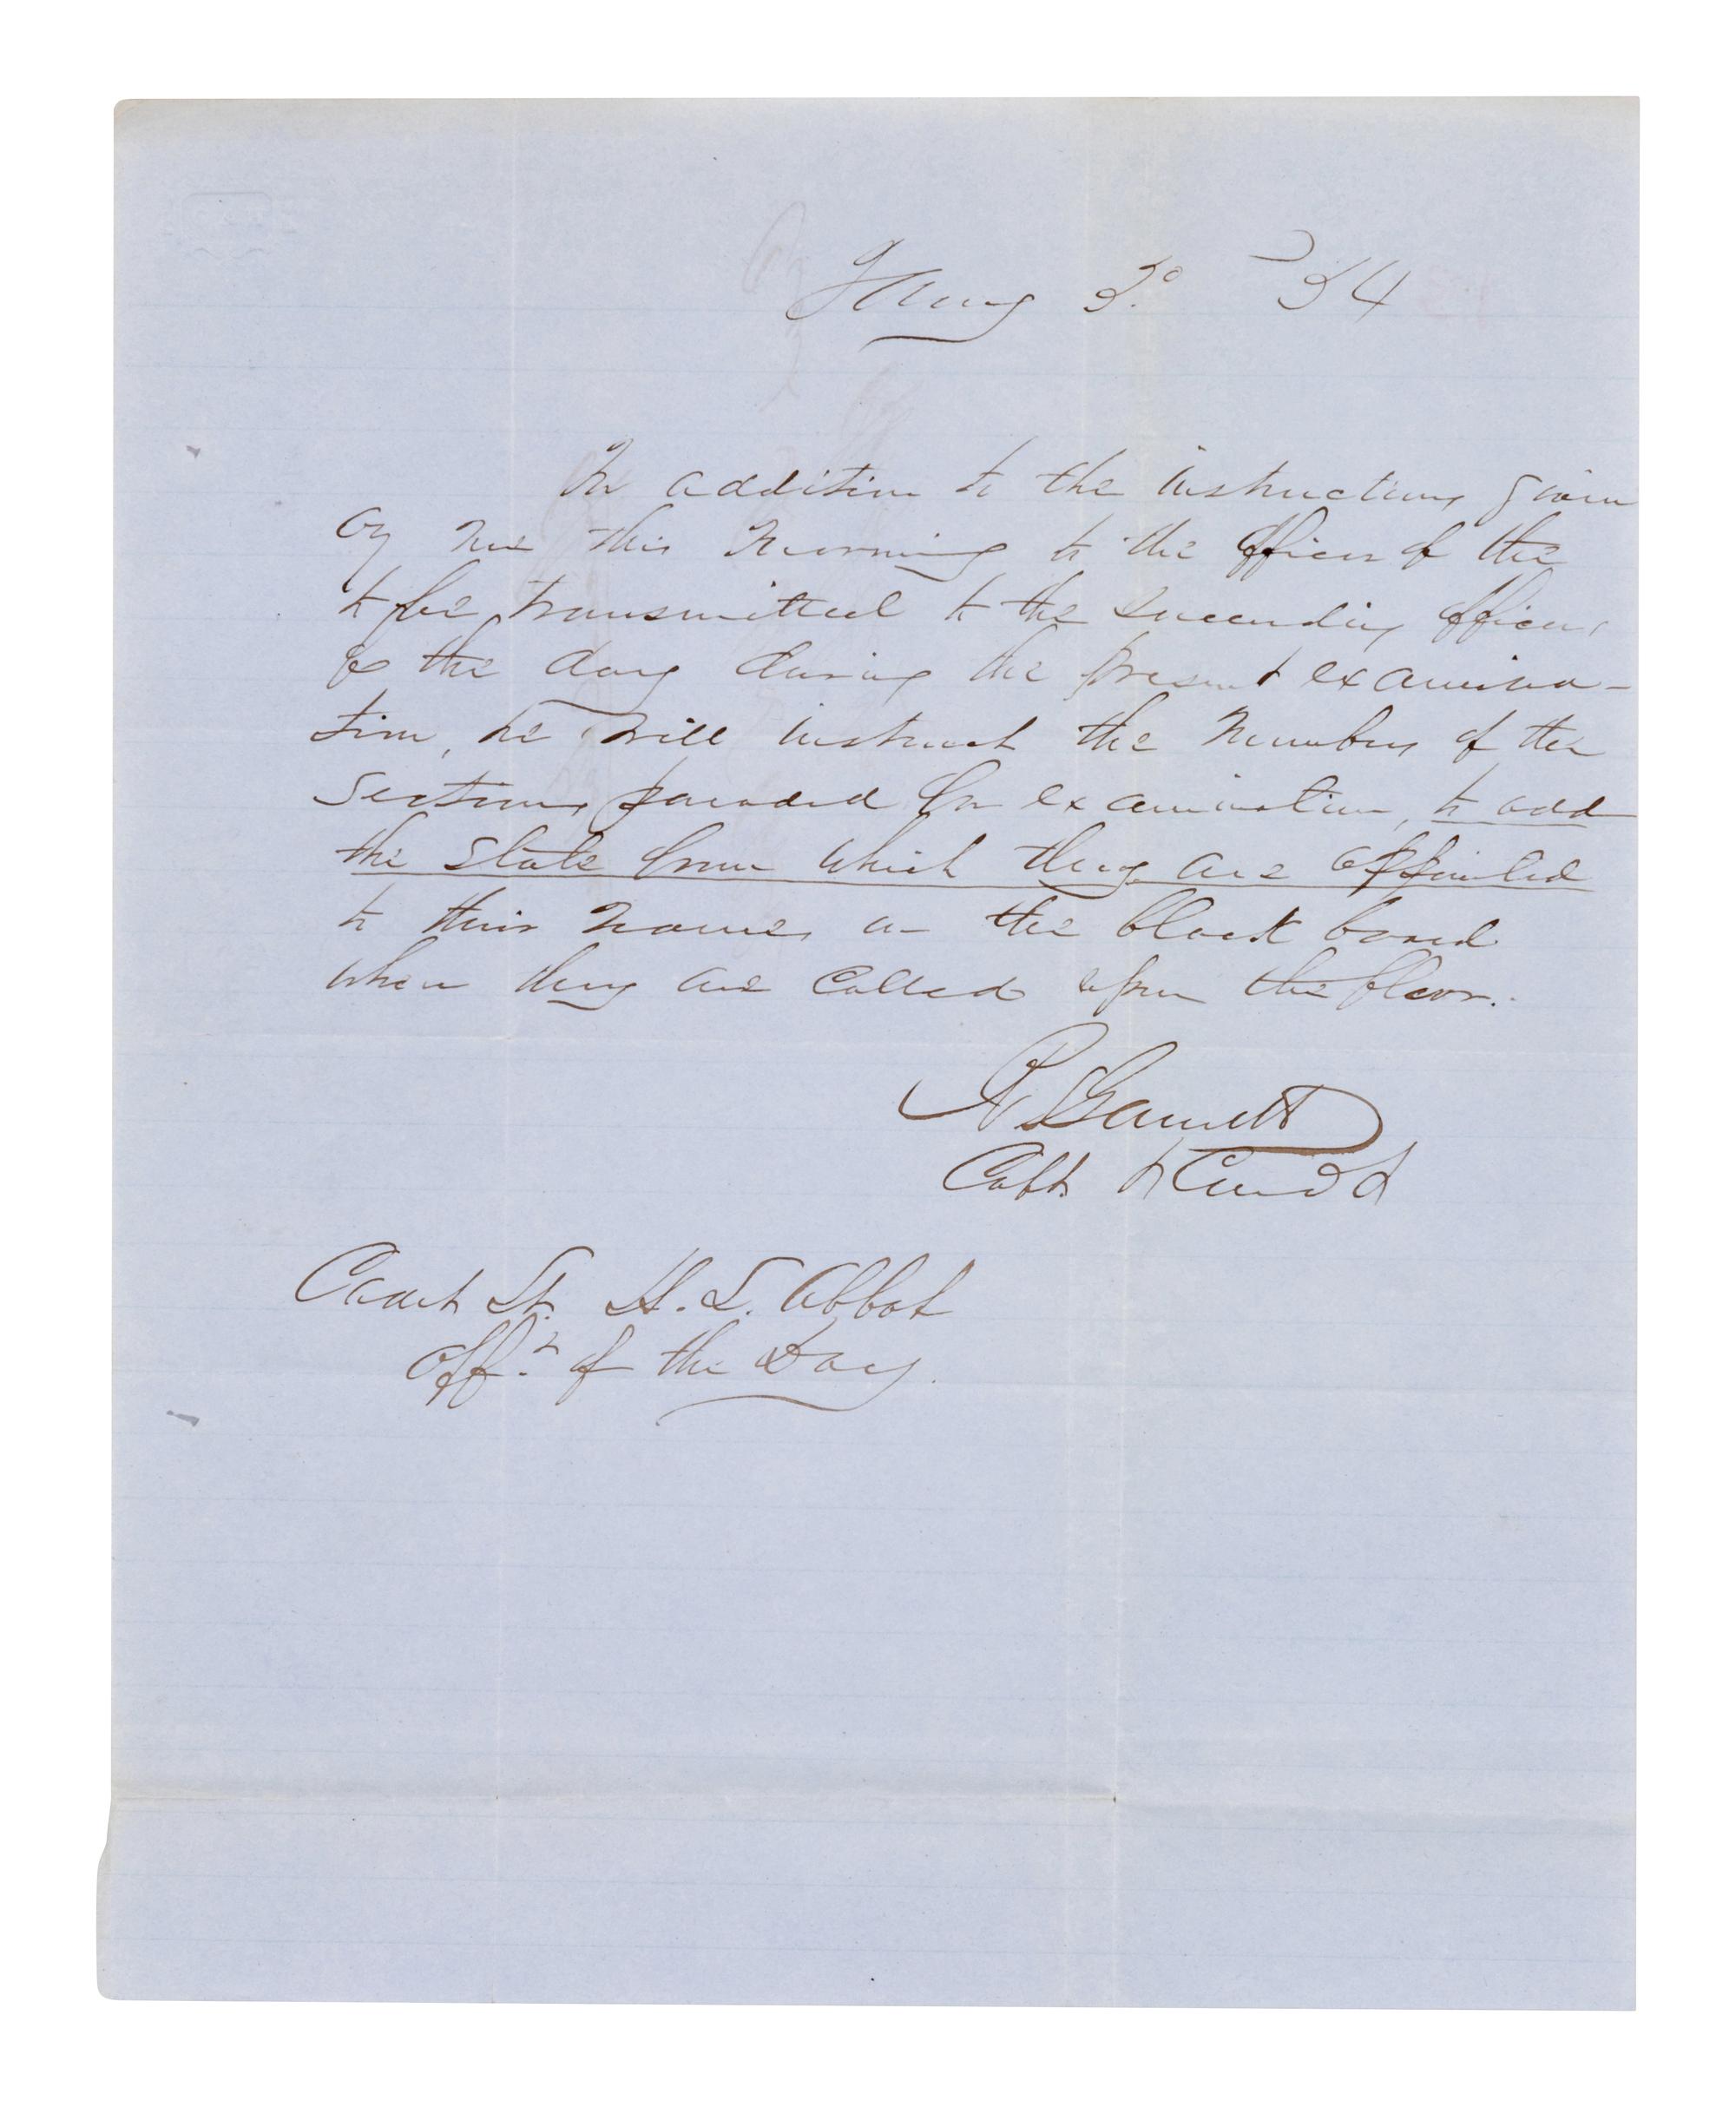 Jany 3.° 54
In addition to the instructions given
by me this morning to the officer of the
to be transmitted to the succeeding officers
of the day during the present examina-
tion, he will instruct the members of the
Sections paraded for examination, to add
the State from which they are appointed
to their names on the black board
when they are called upon the floor.
R S Garnett
Capt. & Comdt
Cadet Lt. H. L. Abbot
Off.r of the Day.